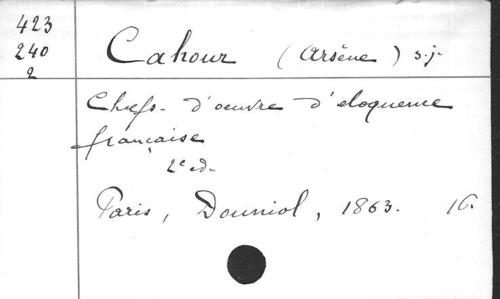 423
240
2
Cahour (Arsène) s.j.
Chefs-d'oeuvre d'eloquence
française
2e ed.
Paris, Douniol, 1863. 16.